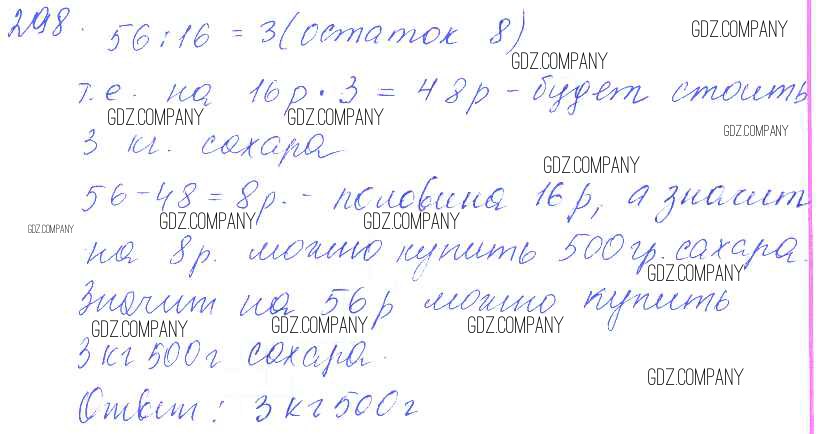 298. 56 : 16 = 3 (остаток 8)
GDZ.COMPANY
GDZ.COMPANY
т.е. на 16р · 3 = 48р - будет стоить
GDZ.COMPANY GDZ.COMPANY
GDZ.COMPANY
3 кг. сахара
GDZ.COMPANY
56 - 48 = 8р. - половина 16р, а значит
GDZ.COMPANY GDZ.COMPANY GDZ.COMPANY
на 8р. можно купить 500гр. сахара.
GDZ.COMPANY
Значит на 56р можно купить
GDZ.COMPANY GDZ.COMPANY GDZ.COMPANY
3 кг 500г сахара.
GDZ.COMPANY
Ответ: 3 кг 500г